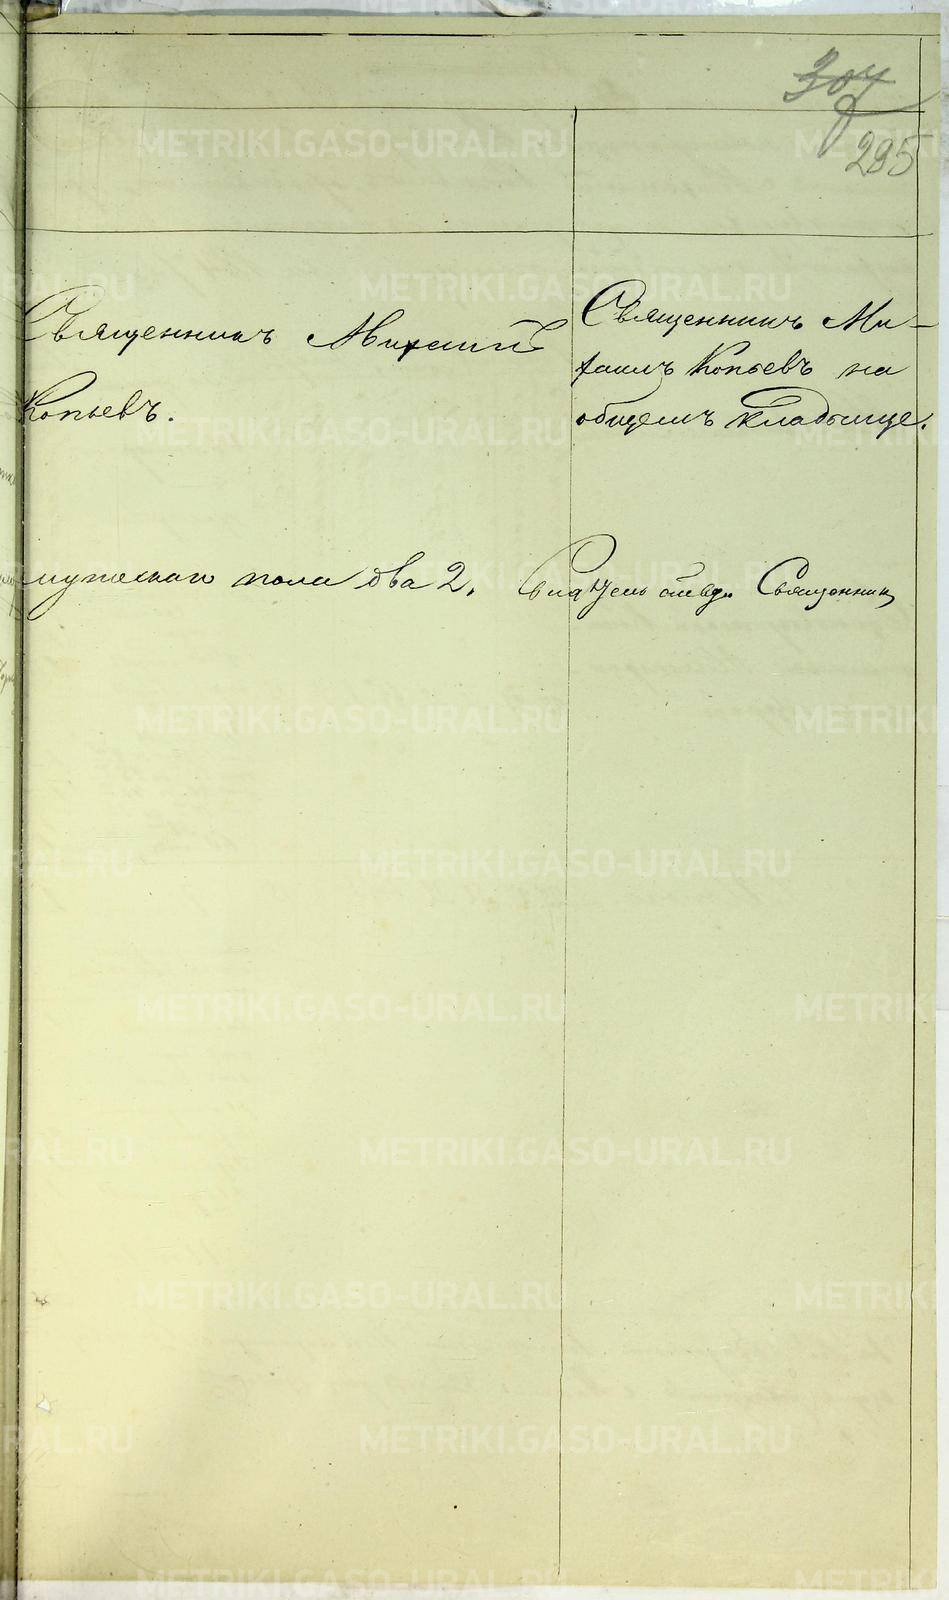 307
295
Священникъ Михаилъ
Копьевъ.
Священникъ Ми-
хаилъ Копьевъ на
общемъ кладбище.
мужескаго пола два 2.
Священник
METRIKI.GASO-URAL.RU